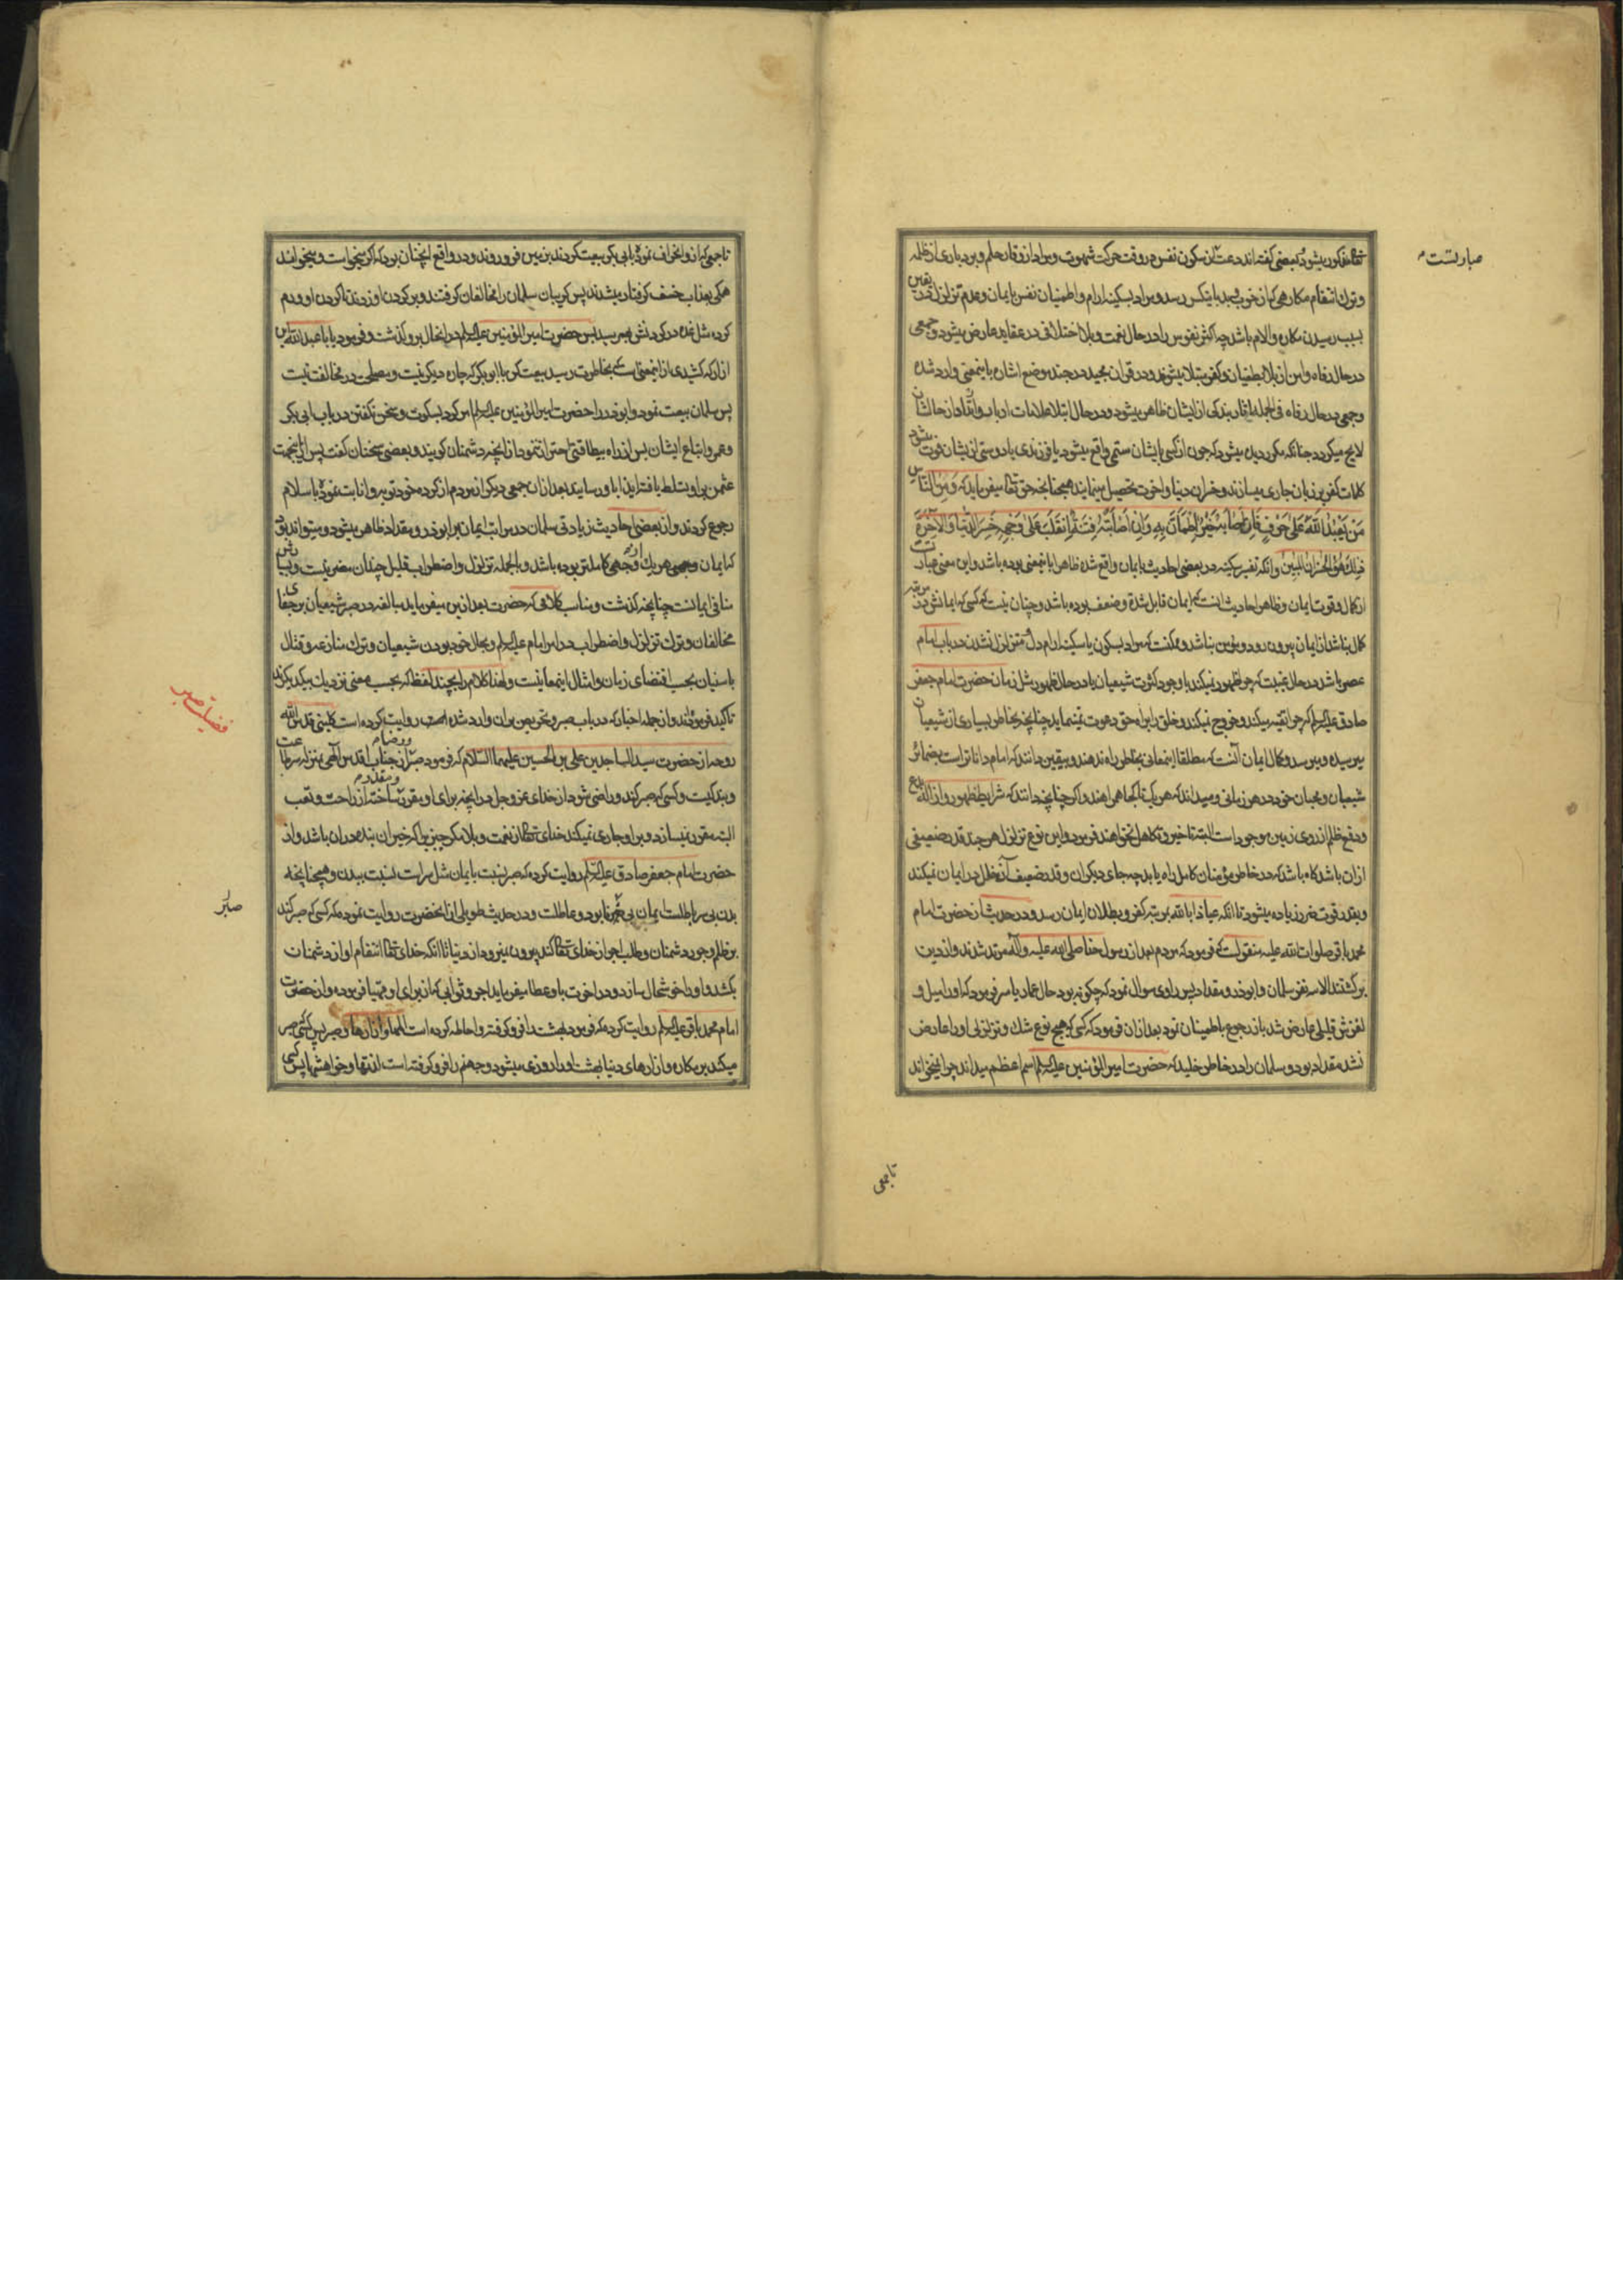 تعالی مذکور میشود و بعضی گفته‌اند دعت آن سکون نفس در وقت حرکت شهوت و مراد از وقار حلم و بردباری از ظلمه
و ترک انتقام مکارهی که از خوب و بد باینکس رسد و مراد بسکینه ارام و اطمینان نفس بایمان و عدم تزلزل در یقین
بسبب رسیدن مکاره و الام باشد چه اکثر نفوس را در حال نعمت و بلا اختلافی در عقاید عارض میشود و جمعی
در حال رفاه و امن از بلا بطغیان و کفر مبتلا میشوند و در قران مجید در چند موضع اشاره باینمعنی وارد شده
و جمعی در حال رفاه فی الجمله اثار بندکی از ایشان ظاهر میشود و در حال ابتلا علامات ارباب و ارتداد از حالشان
لایح میکردد چنانکه مکرر دیده میشود که چون از کسی بایشان ستمی واقع میشود یا فرزندی یا دوستی از ایشان فوت میشود
کلمات کفر بر زبان جاری میسازند و خسران دنیا و اخرت تحصیل مینمایند همچنانچه حق تعالی میفرماید که وَمِنَ النَّاسِ
مَنْ يَعْبُدُ اللّٰهَ عَلىٰ حَرْفٍ فَاِنْ اَصَابَهُ خَيْرٌ اِطْمَاَنَّ بِهِ وَاِنْ اَصَابَتْهُ فِتْنَةٌ انْقَلَبَ عَلىٰ وَجْهِهِ خَسِرَ الدُّنْيَا وَالْاٰخِرَةَ
ذٰلِكَ هُوَ الْخُسْرَانُ الْمُبِيْنُ وانکه تفسیر سکینه در بعضی احادیث بایمان واقع شده ظاهرا باینمعنی بوده باشد و این معنی عبارتست
از کمال و قوت ایمان و ظاهر احادیث انست که ایمان قابل شدة و ضعف بوده باشد و چنان نیست که کسی که ایمانش در مرتبه
کمال نباشد از ایمان بیرون رود و مؤمن نباشد و ممکنست که مراد بسکون یا سکینه ارام دل و متزلزل نشدن در باب امام
عصر باشد در حال غیبت که چرا ظهور نمیکند با وجود کثرت شیعیان یا در حال ظهور مثل زمان حضرت امام جعفر
صادق علیه السلام که چرا تقیه میکند و خروج نمیکند و خلق را براه حق دعوت نمینماید چنانچه بخاطر بسیاری از شیعیان
میرسیده و میرسد و کمال ایمان آنست که مطلقا اینمعانی بخاطر راه ندهند و بیقین دانند که امام داناتر است بضمائر
شیعیان و محبان خود در هر زمانی و میداند که هر یک تا کجا همراهند و اکر چنانچه دانند که شرایط ظهور و ازاله بدع
و دفع ظلم از روی زمین موجود است البته تاخیر و تکاهل نخواهند فرمود و این نوع تزلزل هر چند قدر ضعیفی
ازان باشد کاه باشد که در خاطر مؤمنان کامل راه یابد چه جای دیکران و قدر ضعیف آن مخل در ایمان نمیکند
و بقدر قوت ضرر زیاده میشود تا انکه عیاذا بالله بمرتبه کفر و بطلان ایمان رسد و در حدیث از حضرت امام
محمد باقر صلوات الله علیه منقولست که فرمود که مردم بعد از رسول خدا صلی الله علیه و آله مرتد شدند و از دین
برکشتند الا سه نفر سلمان و ابوذر و مقداد پس راوی سوال نمود که چکونه بود حال عمار یاسر فرمود که او را میل و
لغزش قلیلی عارض شد باز رجوع باطمینان نمود بعد ازان فرمود که کسی که هیچ نوع شک و تزلزلی او را عارض
نشد مقداد بود و سلمان را در خاطر خلید که حضرت امیر المؤمنین علیه السلام اسم اعظم میداند چرا نمیخواند
صبارتست
تا جمعی
تا جمعی که ازو انحراف نموده با ابی بکر بیعت کردند بزمین فرو روند و در واقع اینچنان بود که اکر میخواست و میخواند
همکی بعذاب خسف کرفتار میشدند پس کریبان سلمان را مخالفان کرفتند و بر کردن او زدند تا کردن او ورم
کرده مثل غده در کردنش بهم رسید پس حضرت امیر المؤمنین علیه السلام در انحال برو کذشت و فرمود یا با عبد الله این
ازارکه کشیدی از اینمعنی است که بخاطرت رسید بیعت کن با ابو بکر که چاره دیکر نیست و مصلحت در مخالفت نیست
پس سلمان بیعت نمود و ابوذر را حضرت امیر المؤمنین علیه السلام امر کرد بسکوت و سخن نکفتن در باب ابی بکر
و عمر و اتباع ایشان پس از راه بیطاقتی احتراز ننمود از انچه دشمنان کویند و بعضی سخنان کفت پس ازینجهت
عثمن برو تسلط یافته ایذا باو رسانید بعد ازان جمعی دیکر از مردم از کرده خود توبه و انابت نموده باسلام
رجوع کردند و از بعضی احادیث زیادتی سلمان در مراتب ایمان بر ابوذر و مقداد ظاهر میشود و میتواند بود
که ایمان هر یک از وجهی کاملتر بوده باشد و بالجمله تزلزل و اضطراب قلیل چندان مضر نیست و بسیارش
منافی ایمانست چنانچه کذشت و مناسب کلامی که حضرت بعد ازین میفرماید مبالغه در صبر شیعیان بر جفای
مخالفان و ترک تزلزل و اضطراب در امر امام علیه السلام و بحال خود بودن شیعیان و ترک منازعه و قتال
با سنیان بحسب اقتضای زمان و امثال اینمعانیست و لهذا کلام را بچند لفظ که بحسب معنی نزدیک بیکدیکرند
تاکید فرموده‌اند و از جمله اخبار که در باب صبر و تحریص بران وارد شده است روایت کرده است کلینی قدس الله
روحه از حضرت سید الساجدین علی بن الحسین علیهما السّلام که فرمود صبر و رضا از جناب اقدس الهی بمنزله سر طاعت
و بندکیست و کسی که صبر کند و راضی شود از خدای عز و جل در انچه برای او مقدر و مقرر ساخته از راحت و تعب
البته مقرر نمیسازد و برو جاری نمیکند خدای تعالی از نعمت و بلا مکر چیزی را که خیر ان بنده دران باشد و از
حضرت امام جعفر صادق علیه السلام روایت کرده که صبر نسبت بایمان مثل سر است نسبت ببدن و همچنانچه
بدن بی سر باطلست ایمان بی صبر نابود و عاطلست و در حدیث طویلی از انحضرت روایت نموده که کسی که صبر کند
بر ظلم و جور دشمنان و طلب اجر از خدای تعالی کند بیرون نمیرود از دنیا تا انکه خدای تعالی انتقام او از دشمنان
بکشد و او را خوشحال سازد و در اخرت باو عطا میفرماید اجر و ثوابی که از برای او مهیا فرموده و از حضرت
امام محمد باقر علیه السلام روایت کرده که فرمود بهشت را فرو کرفته و احاطه کرده است المها و ازارها و صبر پس کسی که صبر
میکند بر مکاره و ازارهای دنیا بهشت او را روزی میشود و جهنم را فرو کرفته است لذتها و خواهشها پس کسی که
فضیلت صبر
صابر